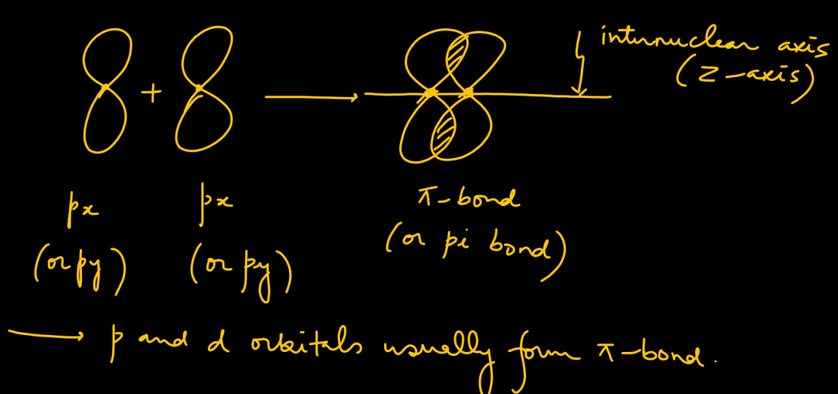 internuclear axis
(Z-axis)
+
px
px
π-bond
(or py)
(or py)
(or pi bond)
→ p and d orbitals usually form π-bond.